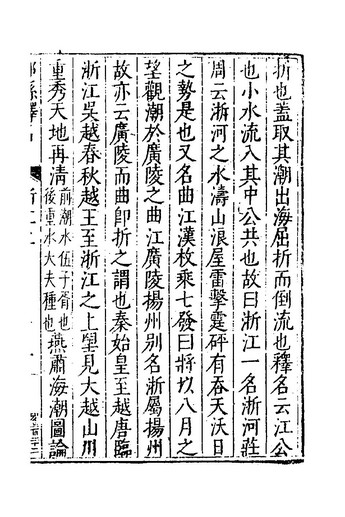 折也蓋取其潮出海屈折而倒流也釋名云江公
也小水流入其中公共也故曰浙江一名浙河莊
周云浙河之水濤山浪屋雷擊霆砰有吞天沃日
之勢是也又名曲江漢枚乘七發曰將以八月之
望觀潮於廣陵之曲江廣陵揚州別名浙屬揚州
故亦云廣陵而曲卽折之謂也秦始皇至越唐臨
浙江吳越春秋越王至浙江之上望見大越山川
重秀天地再清前潮水伍子胥也後重水大夫種也燕肅海潮圖論